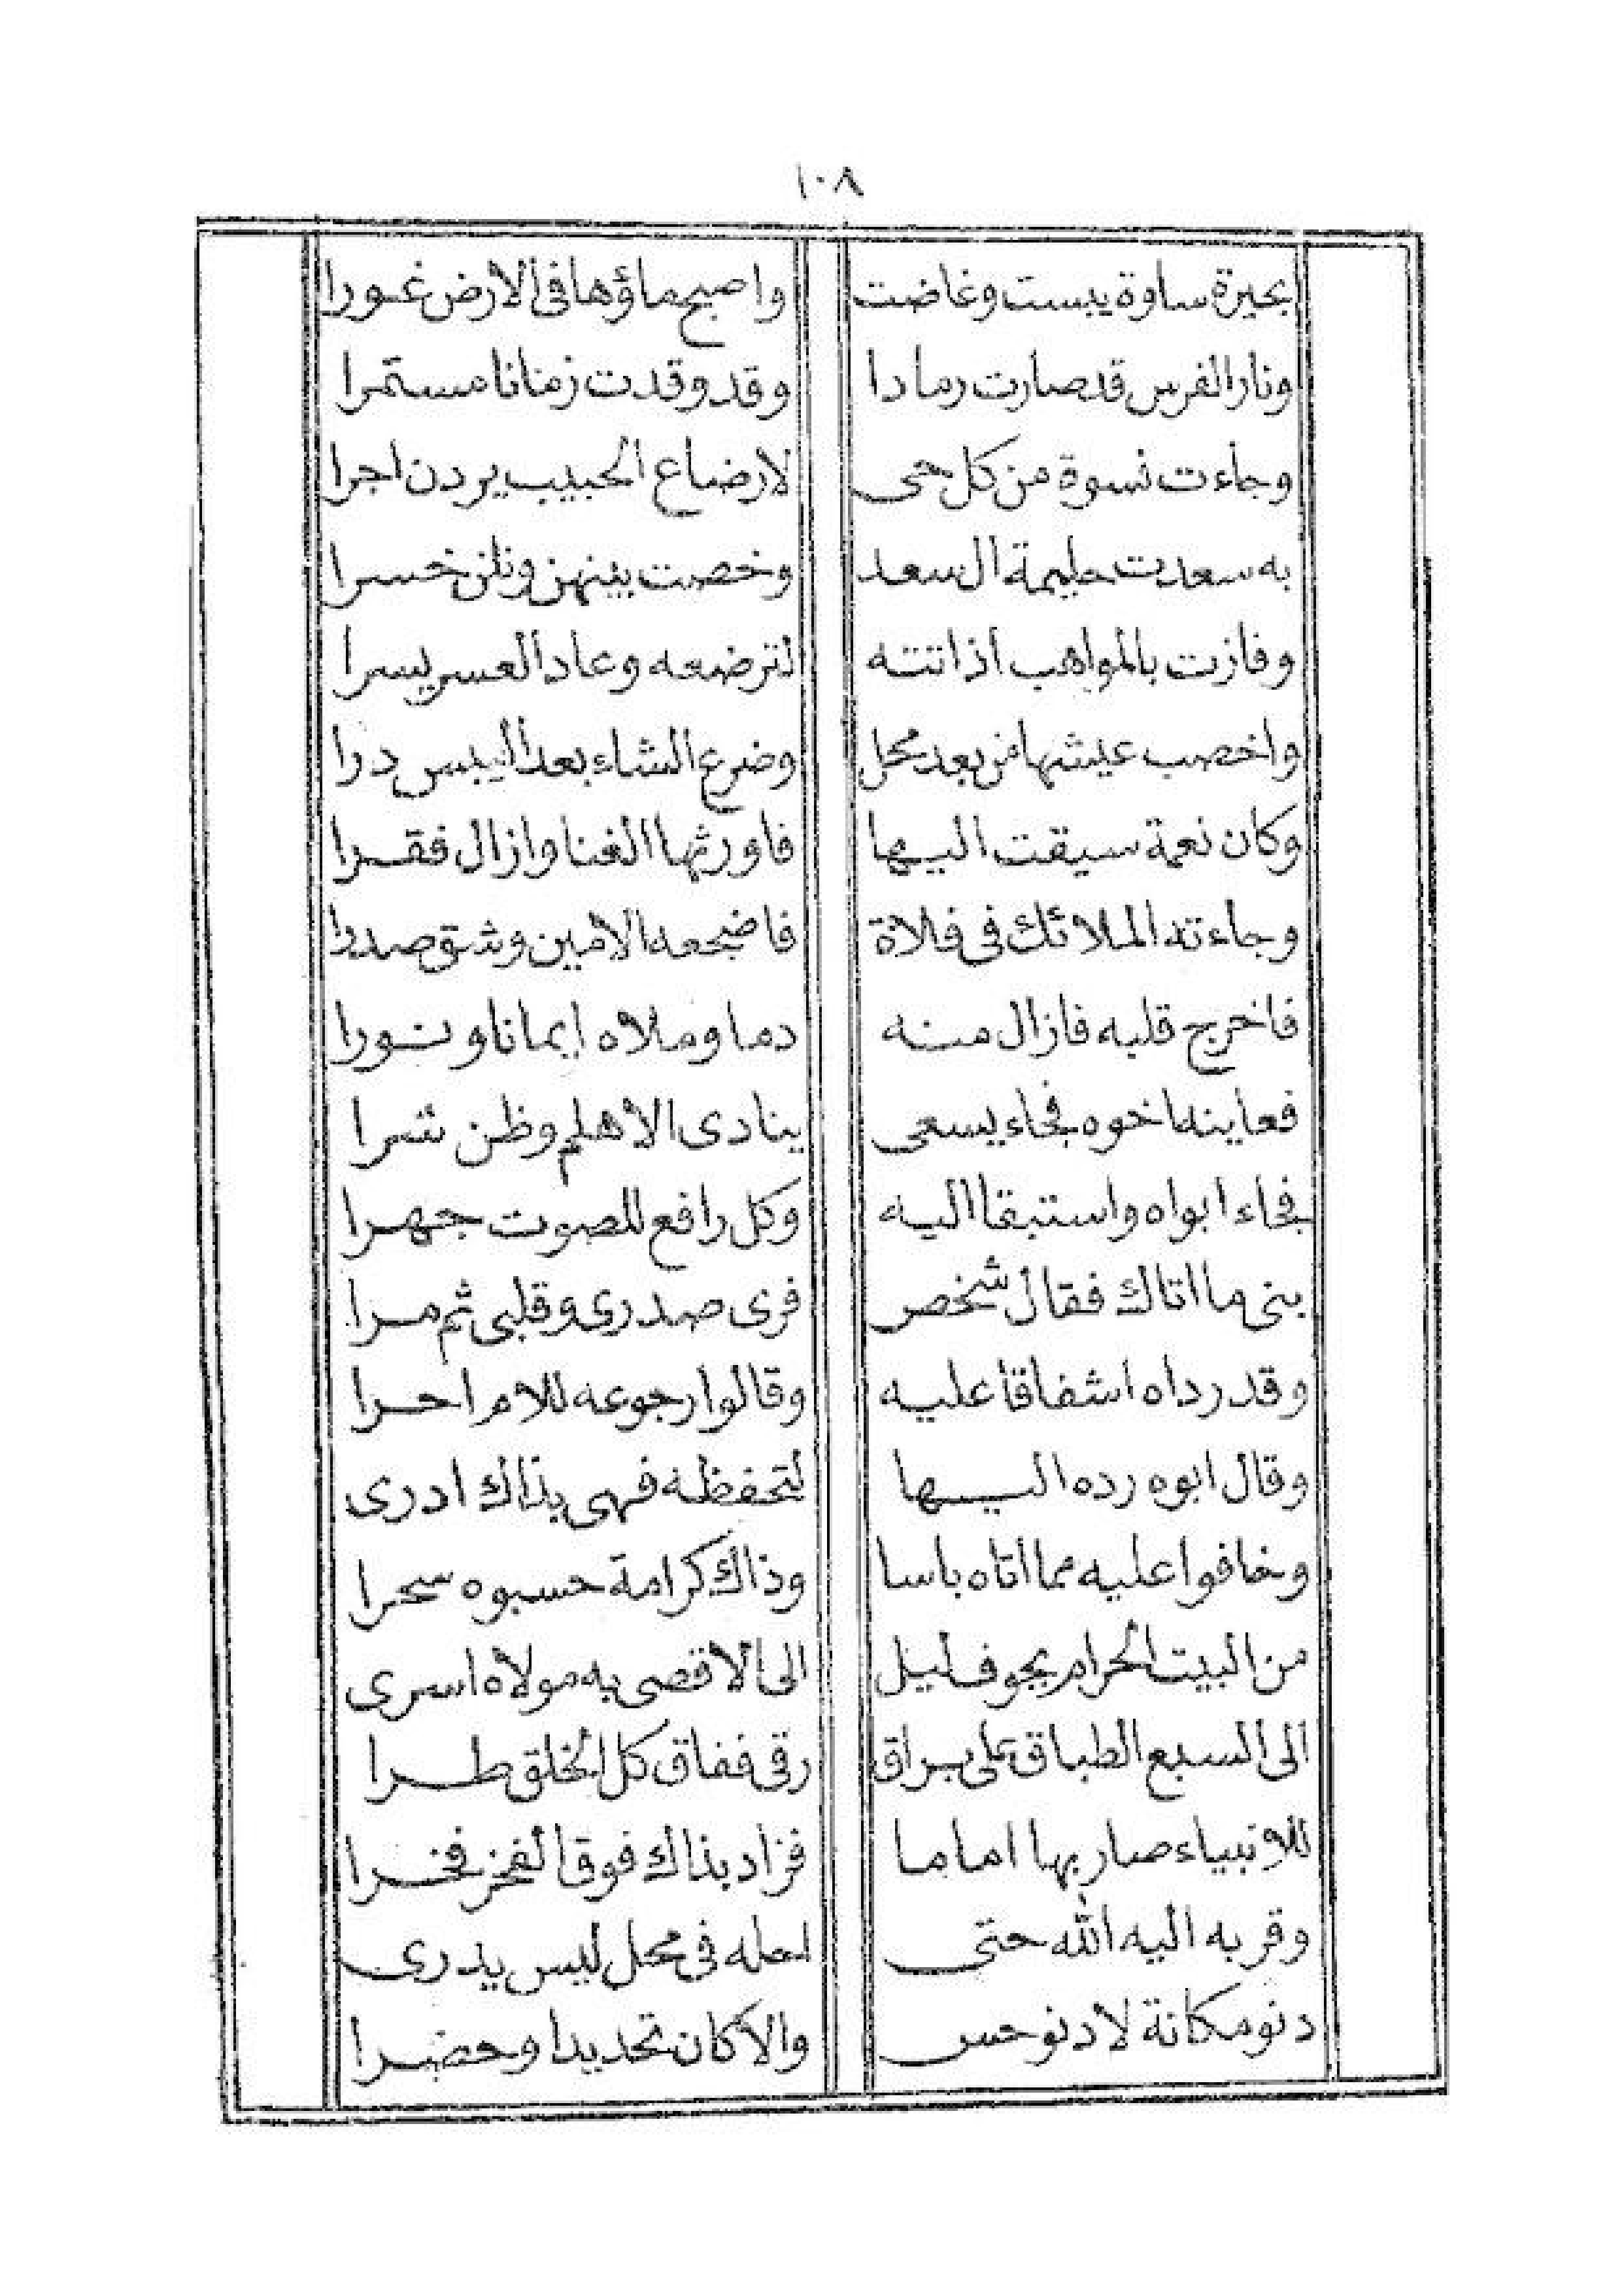 ١٠٨
بحيرة ساوة يبست وغاضت واصبح ماؤها فى الارض غورا
ونار الفرس قد صارت رمادا وقد وقدت زمانا مستمرا
وجاءت نسوة من كل حى لارضاع الحبيب يردن اجرا
به سعدت حليمة ال سعد وخصت بينهن ونلن خسرا
وفازت بالمواهب اذ اتته لترضعه وعاد العسر يسرا
واخصب عيشها من بعد محل وضرع الشاء بعد اليبس درا
وكان نعمة سيقت اليها فاورثها الغنا وازال فقرا
وجاءته الملائك فى فلاة فاضجعه الامين وشق صدرا
فاخرج قلبه فازال منه دما وملاه إيمانا ونورا
فعاينه اخوه فجاء يسعى ينادى الاهلم وظن شرا
فجاء ابواه واستبقا اليه وكل رافع للصوت جهرا
بنى ما اتاك فقال شخص فرى صدرى وقلبى ثم مرا
وقد رداه اشفاقا عليه وقالوا رجوعه للام احرا
وقال ابوه رده اليها لتحفظه فهى بذاك ادرى
وخافوا عليه مما اتاه باسا وذاك كرامة حسبوه سحرا
من البيت الحرام بجوف ليل الى الاقصى به مولاه اسرى
الى السبع الطباق على براق رقى ففاق كل الخلق طرا
للانبياء صار بها اماما فزاد بذاك فوق الفخر فخرا
وقربه اليه الله حتى احله فى محل ليس يدرى
دنو مكانة لا دنو حس والا كان تحديدا وحضرا